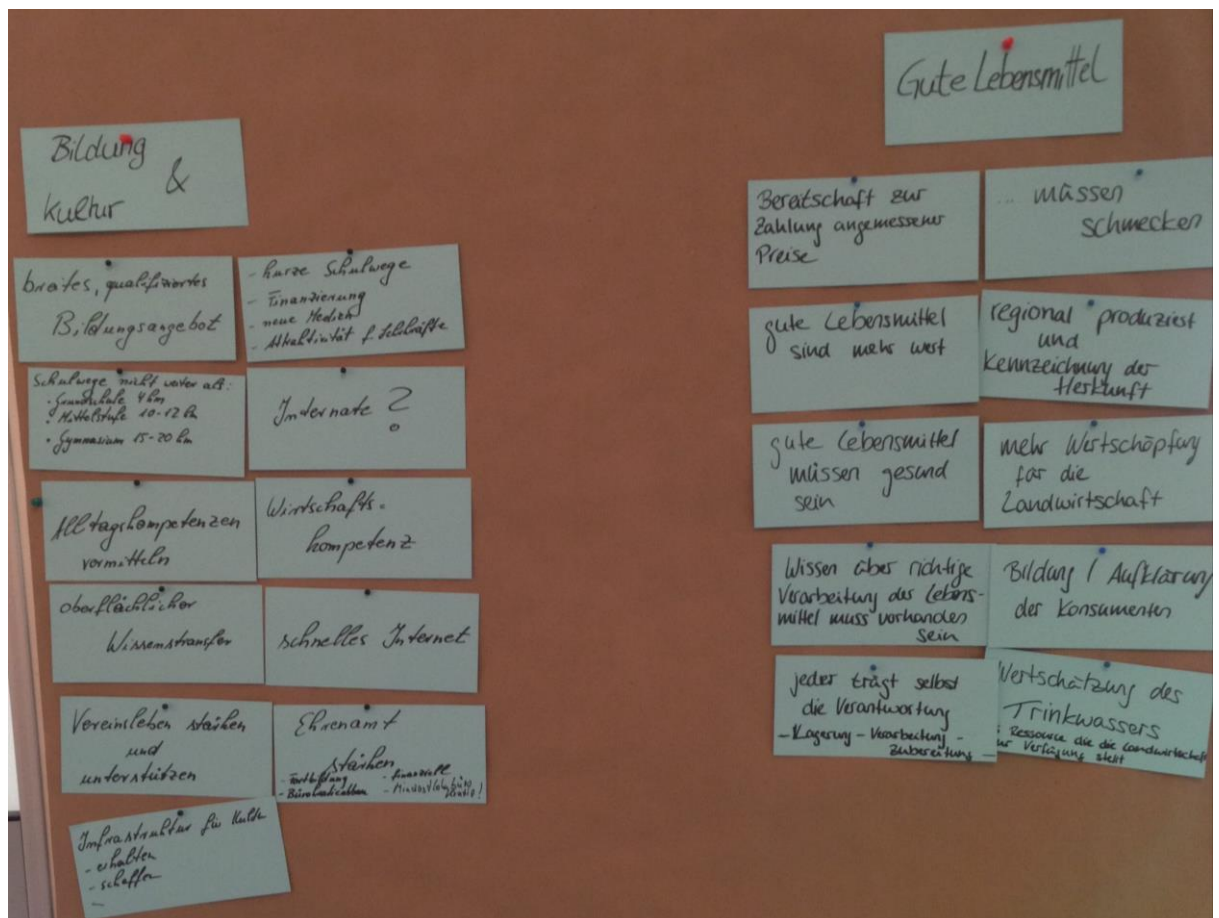 Bildung
&
Kultur
breites, qualifiziertes
Bildungsangebot
- kurze Schulwege
- Finanzierung
- neue Medien
- Attraktivität f. Lehrkräfte
Schulwege nicht weiter als:
• Grundschule 4 km
• Mittelstufe 10-12 km
• Gymnasium 15-20 km
Internate ?
Alltagskompetenzen
vermitteln
Wirtschafts-
kompetenz
oberflächlicher
Wissenstransfer
schnelles Internet
Vereinsleben stärken
und
unterstützen
Ehrenamt
stärken
- finanziell
- Bürokratieabbau
Infrastruktur für Kultur
- erhalten
- schaffen
Gute Lebensmittel
Bereitschaft zur
Zahlung angemessener
Preise
... müssen
schmecken
gute Lebensmittel
sind mehr wert
regional produziert
und
Kennzeichnung der
Herkunft
gute Lebensmittel
müssen gesund
sein
mehr Wertschöpfung
für die
Landwirtschaft
Wissen über richtige
Verarbeitung der Lebens-
mittel muss vorhanden
sein
Bildung / Aufklärung
der Konsumenten
jeder trägt selbst
die Verantwortung
- Lagerung - Verarbeitung -
Zubereitung -
Wertschätzung des
Trinkwassers
Ressource die die Landwirtschaft
zur Verfügung stellt